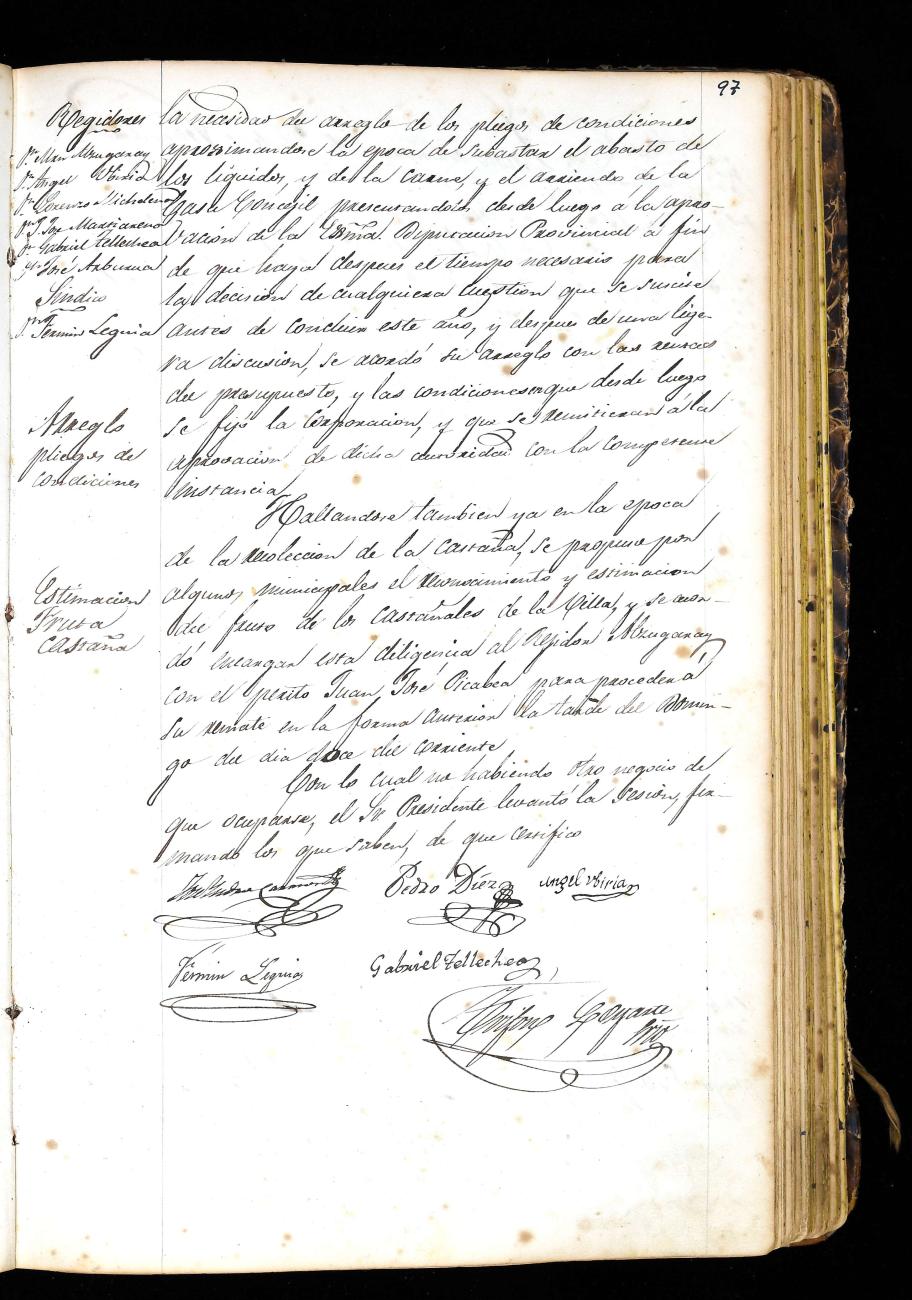 97
Regidores
Dn. Mrn Mzugaray
Dn. Angel Ubiria
Dn. Lorenzo Michelena
Dn. J. Jose Martiarena
Dn. Gabriel Tellechea
Dn. José Arburua
Sindico
Dn. Fermin Leguia
Arreglo
pliegos de
condiciones
Estimacion
Fruta
Castaña
la necesidad del arreglo de los pliegos de condiciones
aprossimandose la epoca de subastar el abasto de
los liquidos, y de la carne, y el arriendo de la
Casa Concejil presentandolos desde luego á la apro-
vación de la Esma. Diputacion Provincial á fin
de que haya despues el tiempo necesario para
la decision de cualquiera cuestion que se suscite
antes de concluir este año, y despues de una lige-
ra discusion, se acordó su arreglo con las rentas
del presupuesto, y las condiciones en que desde luego
se fijó la corporacion, y que se remitieran á la
aprovacion de dicha autoridad con la competente
instancia.
Hallandose tambien ya en la epoca
de la recoleccion de la castaña, se propuso por
algunos municipales el reconocimiento y estimacion
del fruto de los castañales de la Villa, y se acor-
dó encargar esta diligencia al Regidor Mzugaray
con el perito Juan José Picabea para proceder á
su remate en la forma anterior la tarde del Domin-
go del dia doce del corriente,
Con lo cual no habiendo otro negocio de
que ocuparse, el Sr. Presidente levantó la sesion, fir-
mando los que saben, de que certifico
Pedro Díez
Angel Ubiria
Fermin Leguia
Gabriel Tellechea
Loyarte
Srio